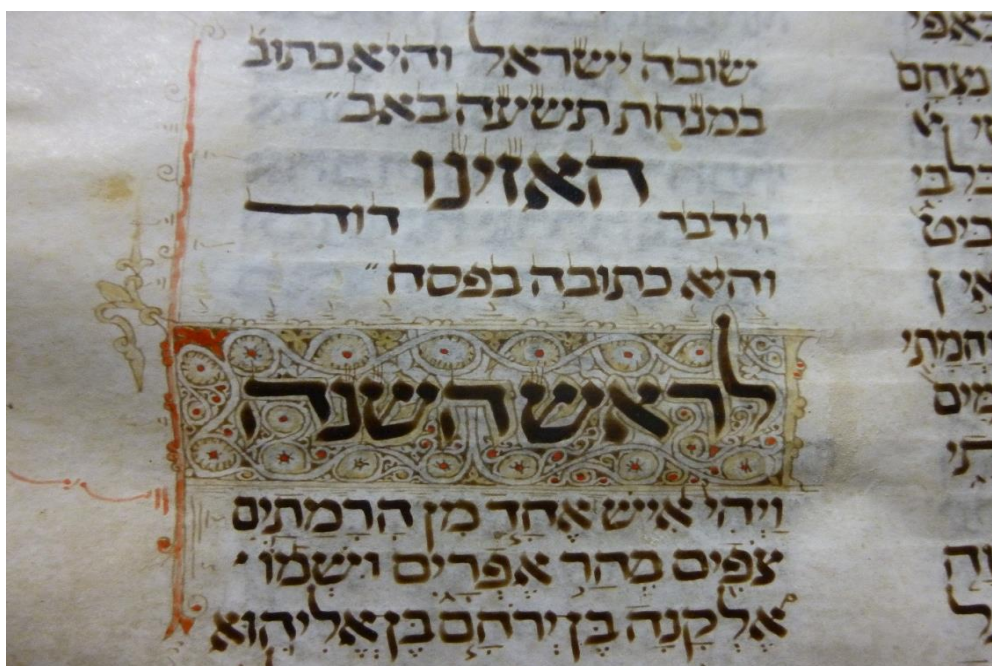 שובה ישראל והיא כתוב
במנחת תשעה באב״
האזינו
וידבר דוד
והיא כתובה בפסח״
לראש השנה
וַיְהִי אִישׁ אֶחָד מִן הָרָמָתַיִם
צֹפִים מֵהַר אֶפְרָיִם וּשְׁמוֹ
אֶלְקָנָה בֶּן יְרֹחָם בֶּן אֱלִיהוּא